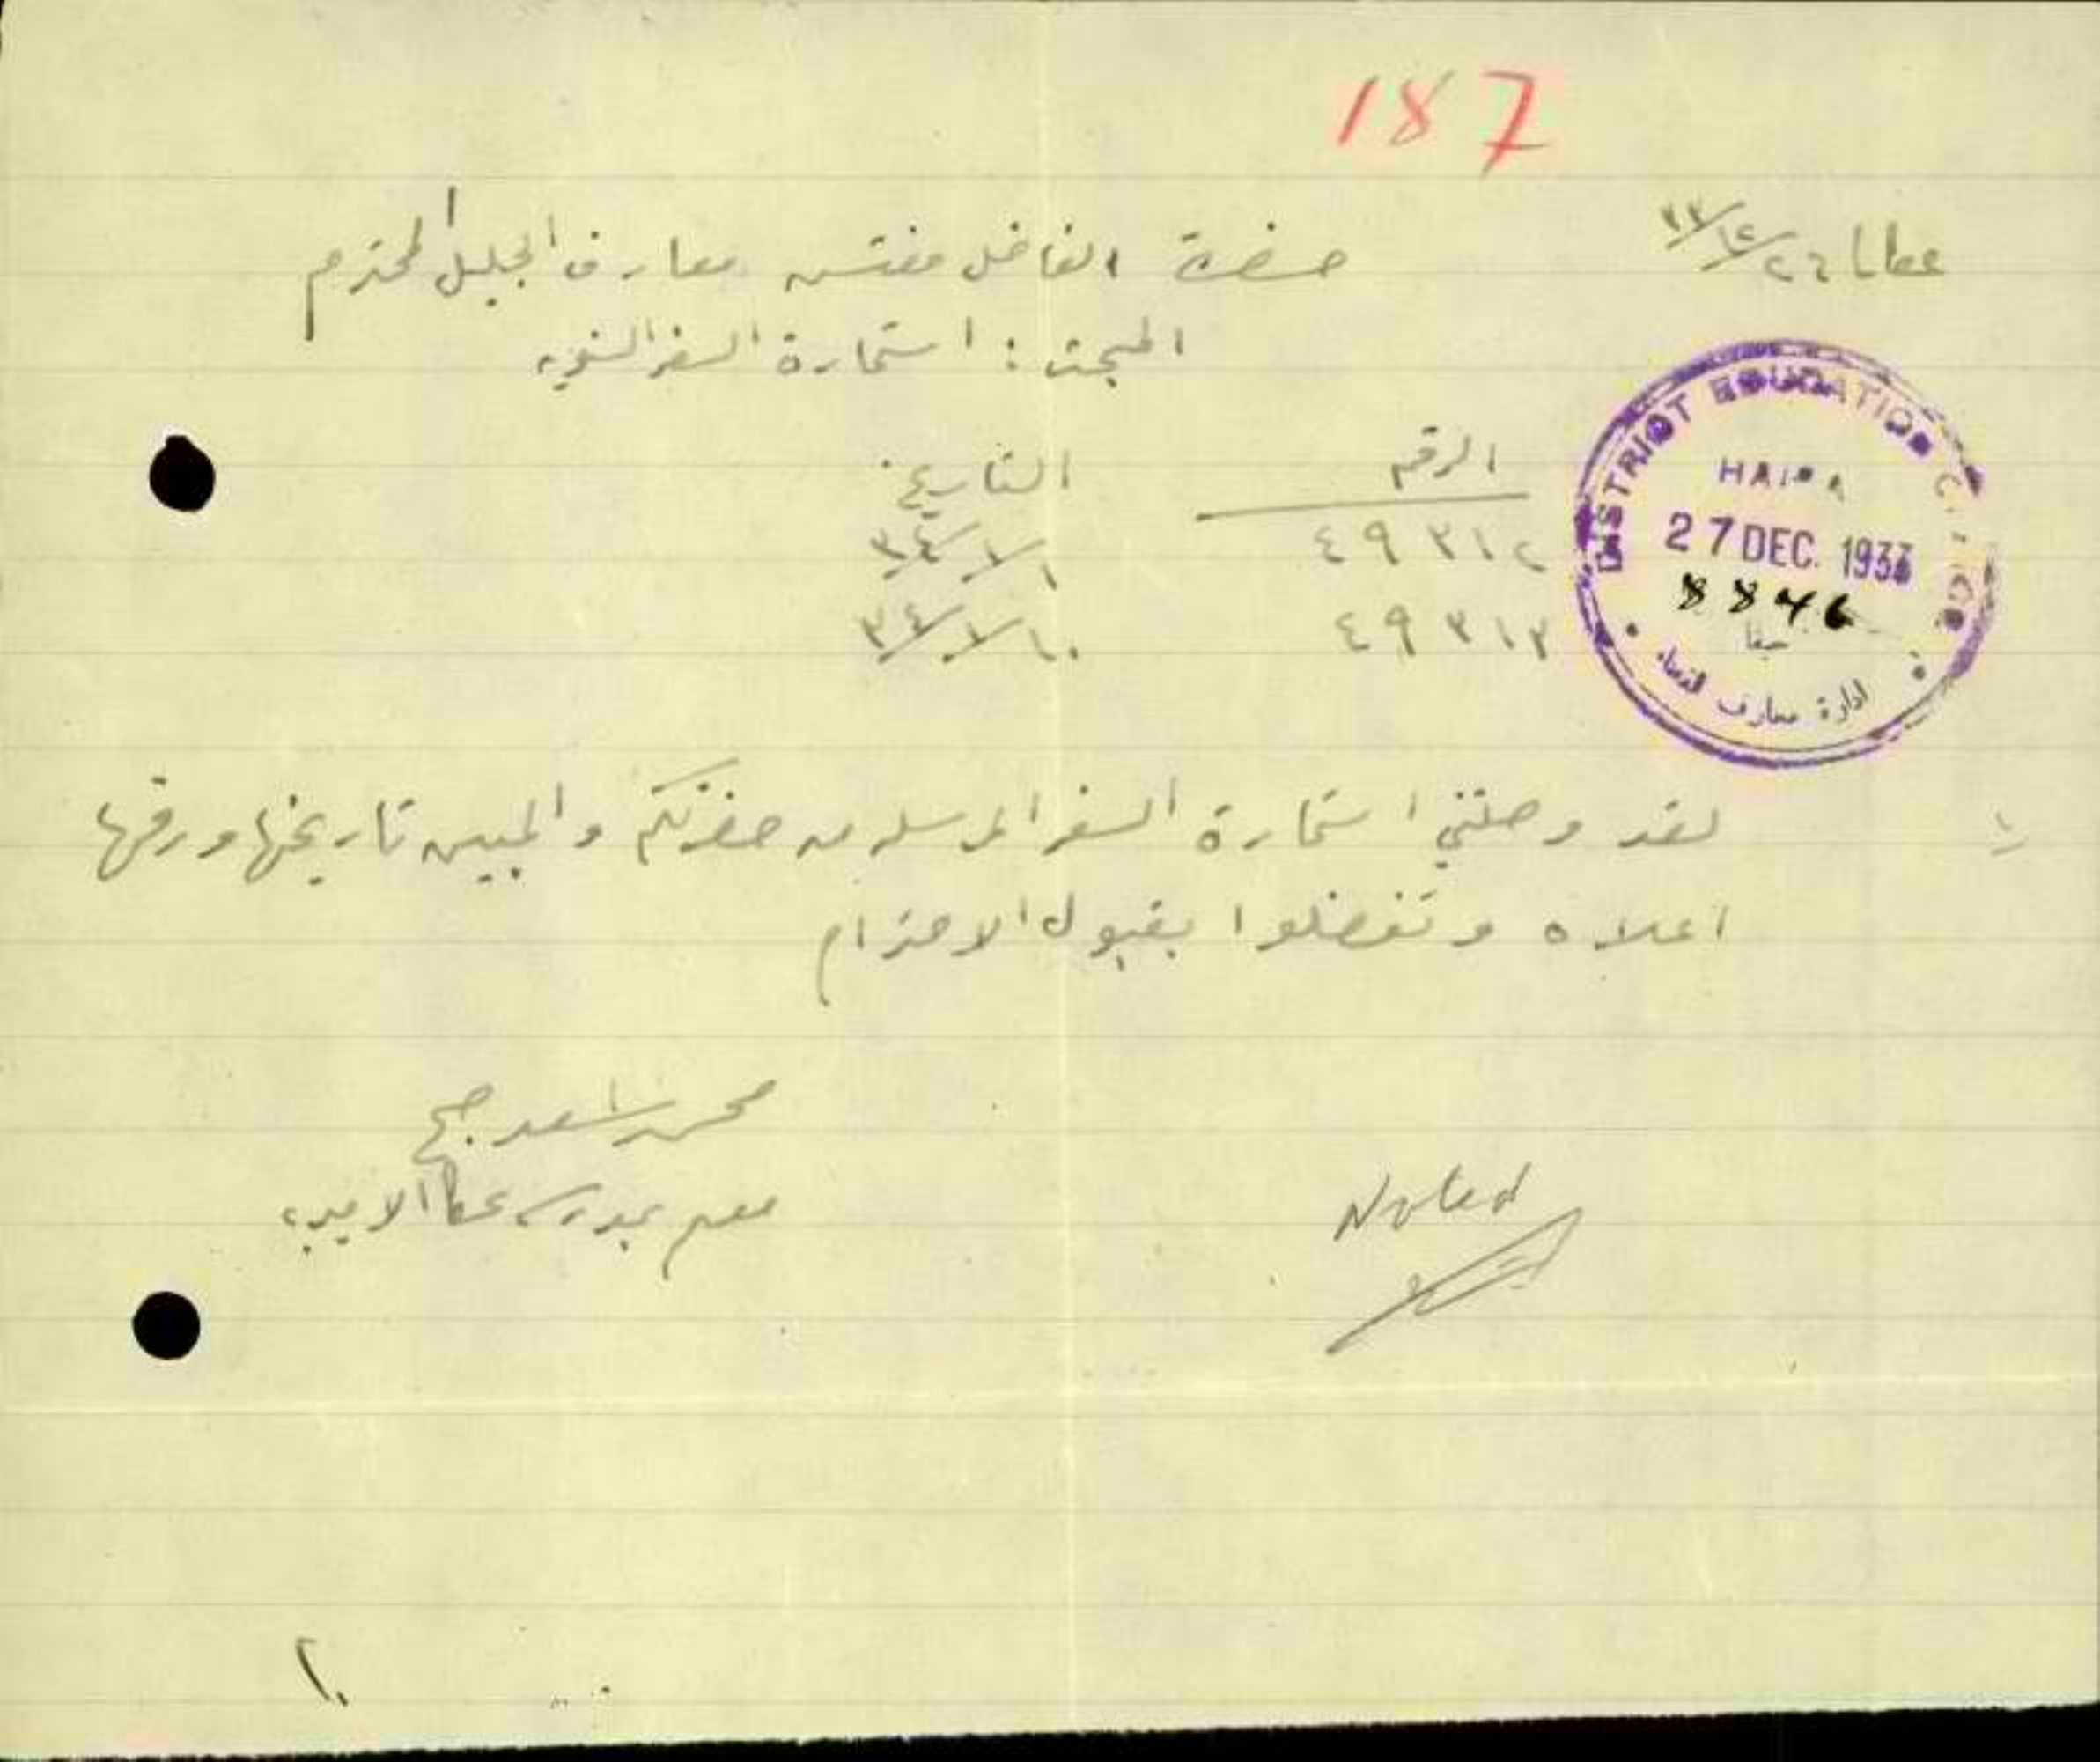 187
عطا ٢٦/١٢/٣٣
حضرة الفاضل مفتش معارف الجليل المحترم
المبحث : استمارة السفر السنويه
الرقم التاريخ
٤٩٣١٢ ١/١/٣٤
٤٩٣١٣ ١٠/١/٣٤
DISTRICT EDUCATION OFFICE
HAIFA
27 DEC. 1933
8846
حيفا
ادارة معارف لواء
لقد وصلتني استمارة السفر المرسله من حضرتكم والمبين تاريخها ورقمها
اعلاه وتفضلوا بقبول الاحترام
محمد اسعد
معلم بمدرسة عكا الاميريه
Noted
١٠